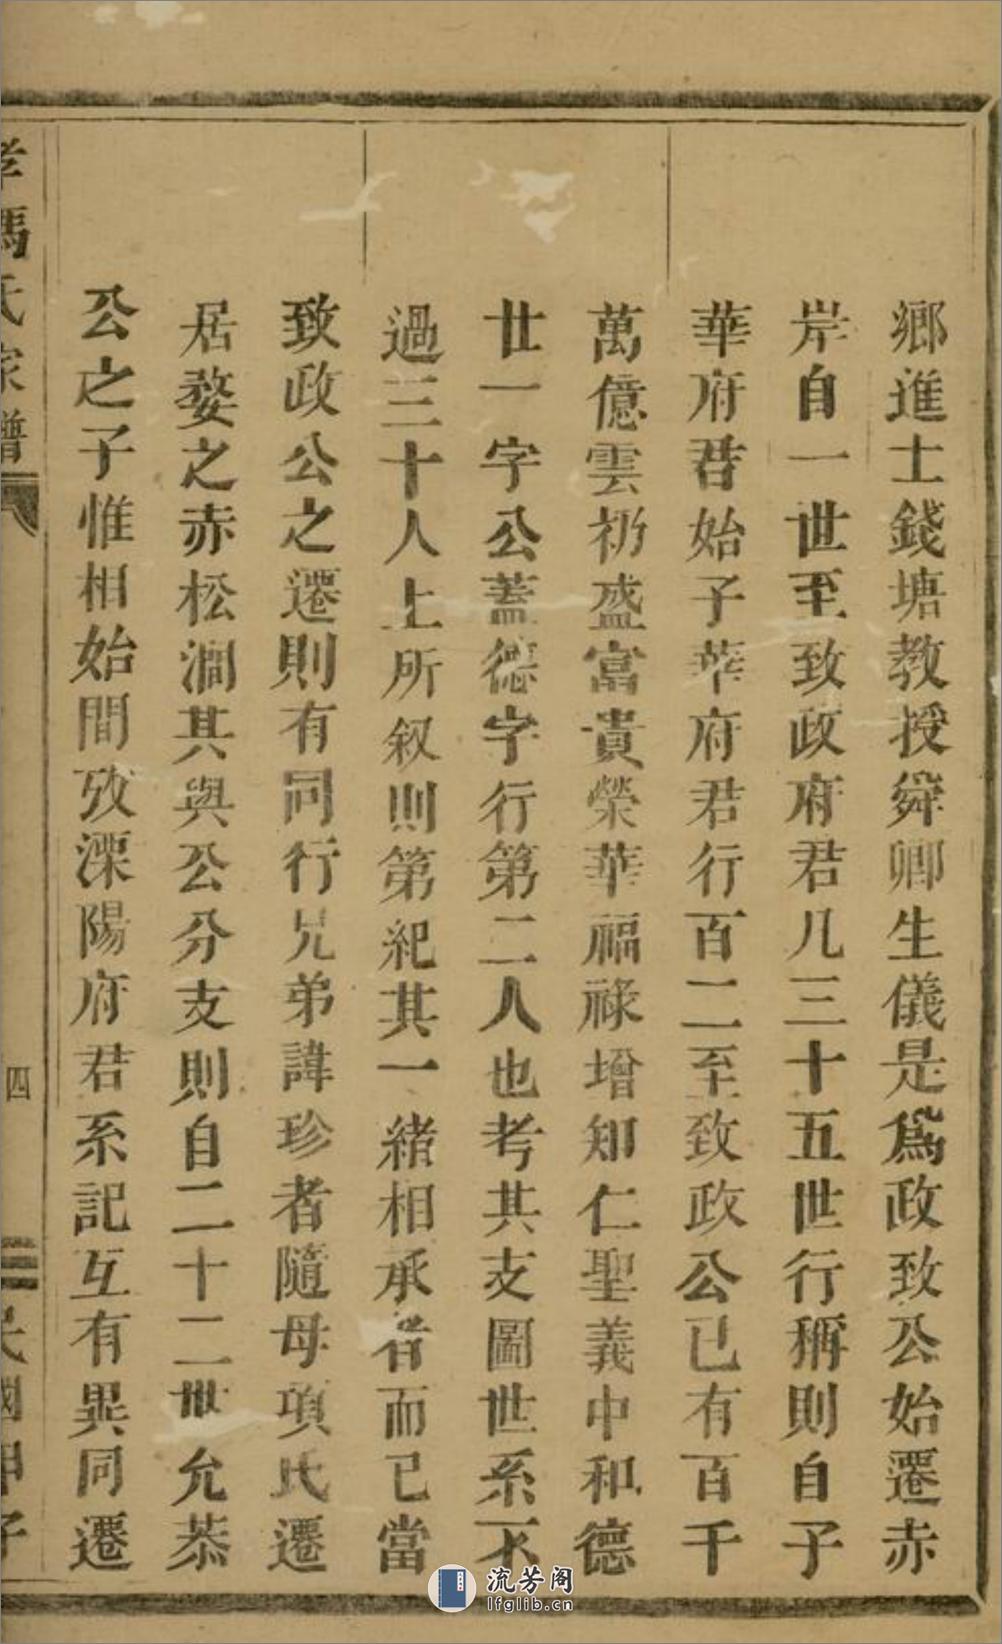 鄉進士錢塘教授舜卿生儀是爲政致公始遷赤
岸自一世至致政府君凡三十五世行稱則自子
華府君始子華府君行百一至致政公已有百千
萬億雲礽盛富貴榮華福祿增知仁聖義中和德
廿一字公蓋德字行第二人也考其支圖世系不
過三十人上所叙則第紀其一緒相承者而已當
致政公之遷則有同行兄弟諱珍者隨母項氏遷
居婺之赤松澗其與公分支則自二十二世允恭
公之子惟相始間攷溧陽府君系記互有異同遷
馮氏家譜
四
民國甲子
流芳阁
lfglib.cn